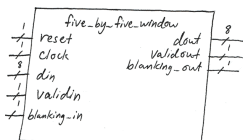 five_by_five_window
1 reset
1 clock
8 din
1 validin
1 blanking_in
dout 8
validout 1
blanking_out 1